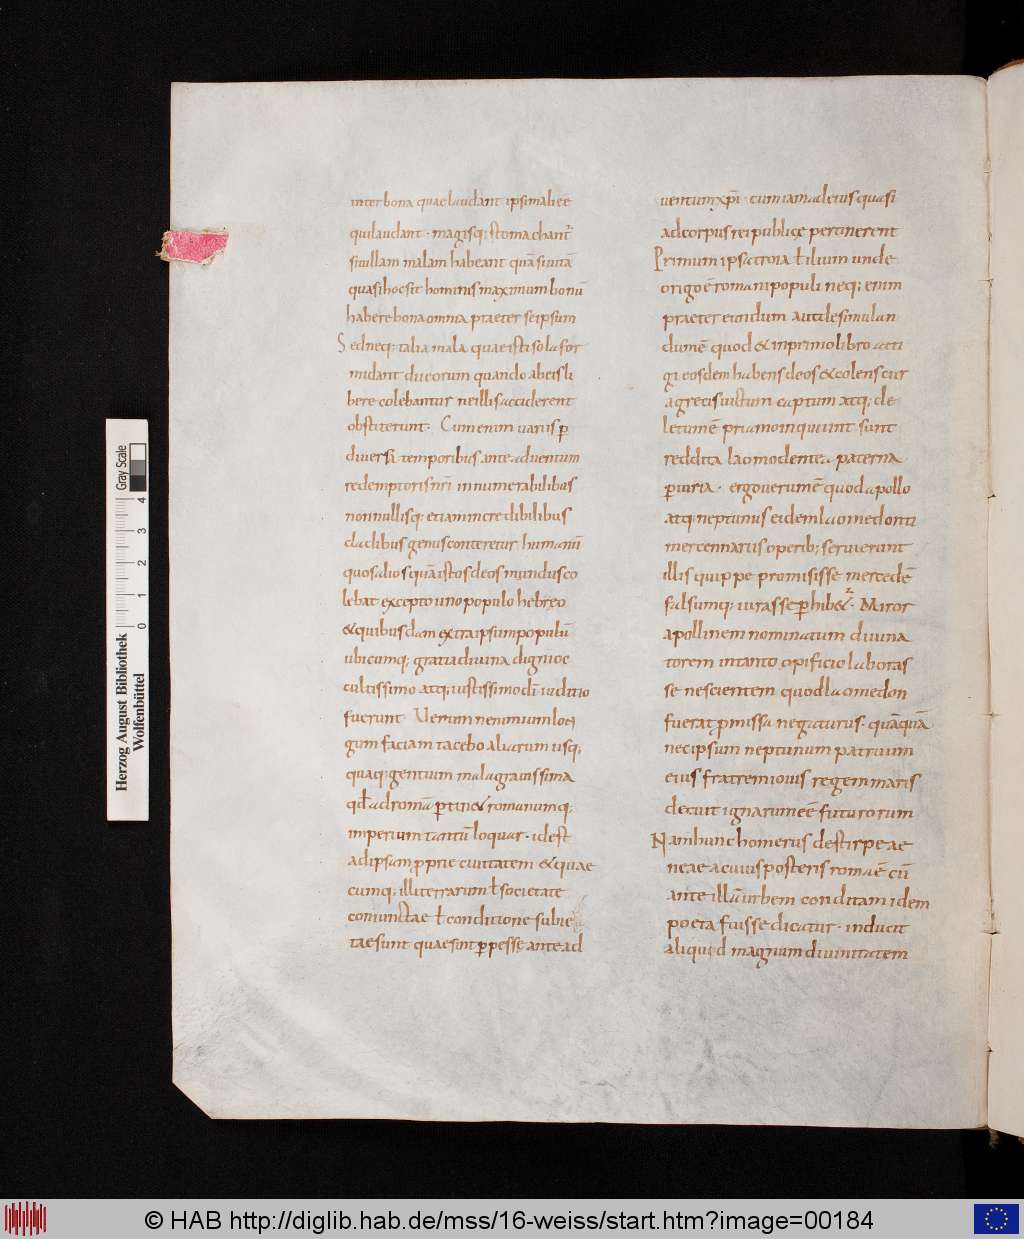 inter bona quae laudant ipsi mali eē
qui laudant · magisq; stomachant᷑
si uillam malam habeant quā si uitā
quasi hoc sit hominis maximum bonū
habere bona omnia praeter se ipsum
Sed neq; talia mala quae isti sola for
midant dii eorum quando ab eis li
bere colebantur ne illis acciderent
obstiterunt · Cum enim uariis ꝑ
diuersa temporibus ante aduentum
redemptoris nr̄i innumerabilibus
nonnullisq; etiam incredibilibus
cladibus genus contereretur humanū
quos alios quā istos deos mundus co
lebat excepto uno populo hebreo
& quibusdam extra ipsum populū
ubicumq; gratia diuina digni oc
cultissimo atq; iustissimo dī iuditio
fuerunt · Verum ne nimium lon
gum faciam tacebo aliarum usq;
quaq; gentium mala grauissima
qđ ad romā ꝑtin& romanumq;
imperium tantū loquar · id est
ad ipsam proprie ciuitatem & quae
cumq; illi terrarum ł societate
coniunctae ł conditione subiec
tae sunt quae sint ꝑpessę ante ad
uentum xp̄i · cum iam ad eius quasi
ad corpus rei publicę pertinerent
Primum ipsa troia ł ilium unde
origo ē romani populi neq; enim
praetereundum aut dissimulan
dum ē quod & in primo libro atti
gi eosdem habens deos & colens cur
a grecis uictum captum atq; de
letum ē priamo inquiunt sunt
reddita laomedontea paterna
ꝑiuria · ergo uerum ē quod apollo
atq; neptunus eidem laomedonti
mercennariis operib; seruierunt
illis quippe promisisse mercedē
falsumq; iurasse ꝑhib&᷑ · Miror
apollinem nominatum diuina
torem in tanto opificio laboras
se nescientem quod laomedon
fuerat ꝓmissa negaturus · quāquā
nec ipsum neptunum patruum
eius fratrem iouis regem maris
decuit ignarum eē futurorum
Nam hunc homerus de stirpe ae
neae a cuius posteris roma ē cū
ante illā urbem conditam idem
poeta fuisse dicatur · inducit
aliquid magnum diuinitatem
Herzog August Bibliothek
Wolfenbüttel
0 1 2 3 4
Gray Scale
© HAB http://diglib.hab.de/mss/16-weiss/start.htm?image=00184